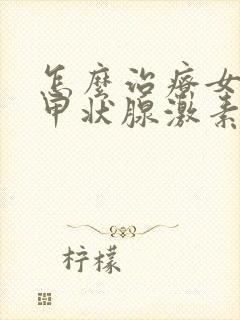 怎麼治療女
甲狀腺激素
柠檬